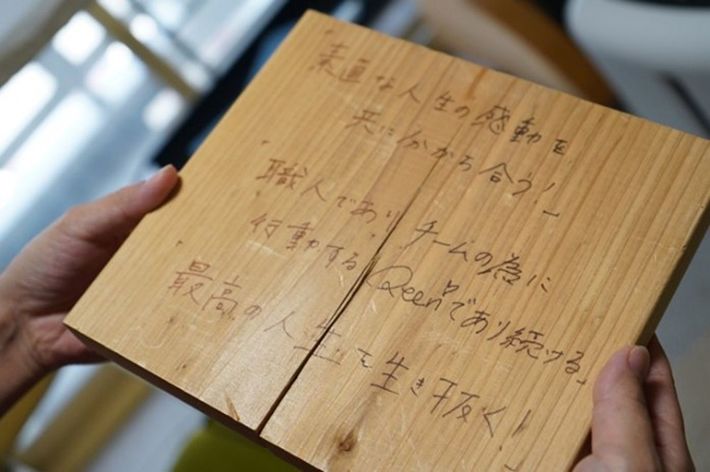 「素直な人生の感動を
共に分かち合う!」
「職人であり チームの為に
行動するQeenであり続ける」
最高の人生を生き抜く!